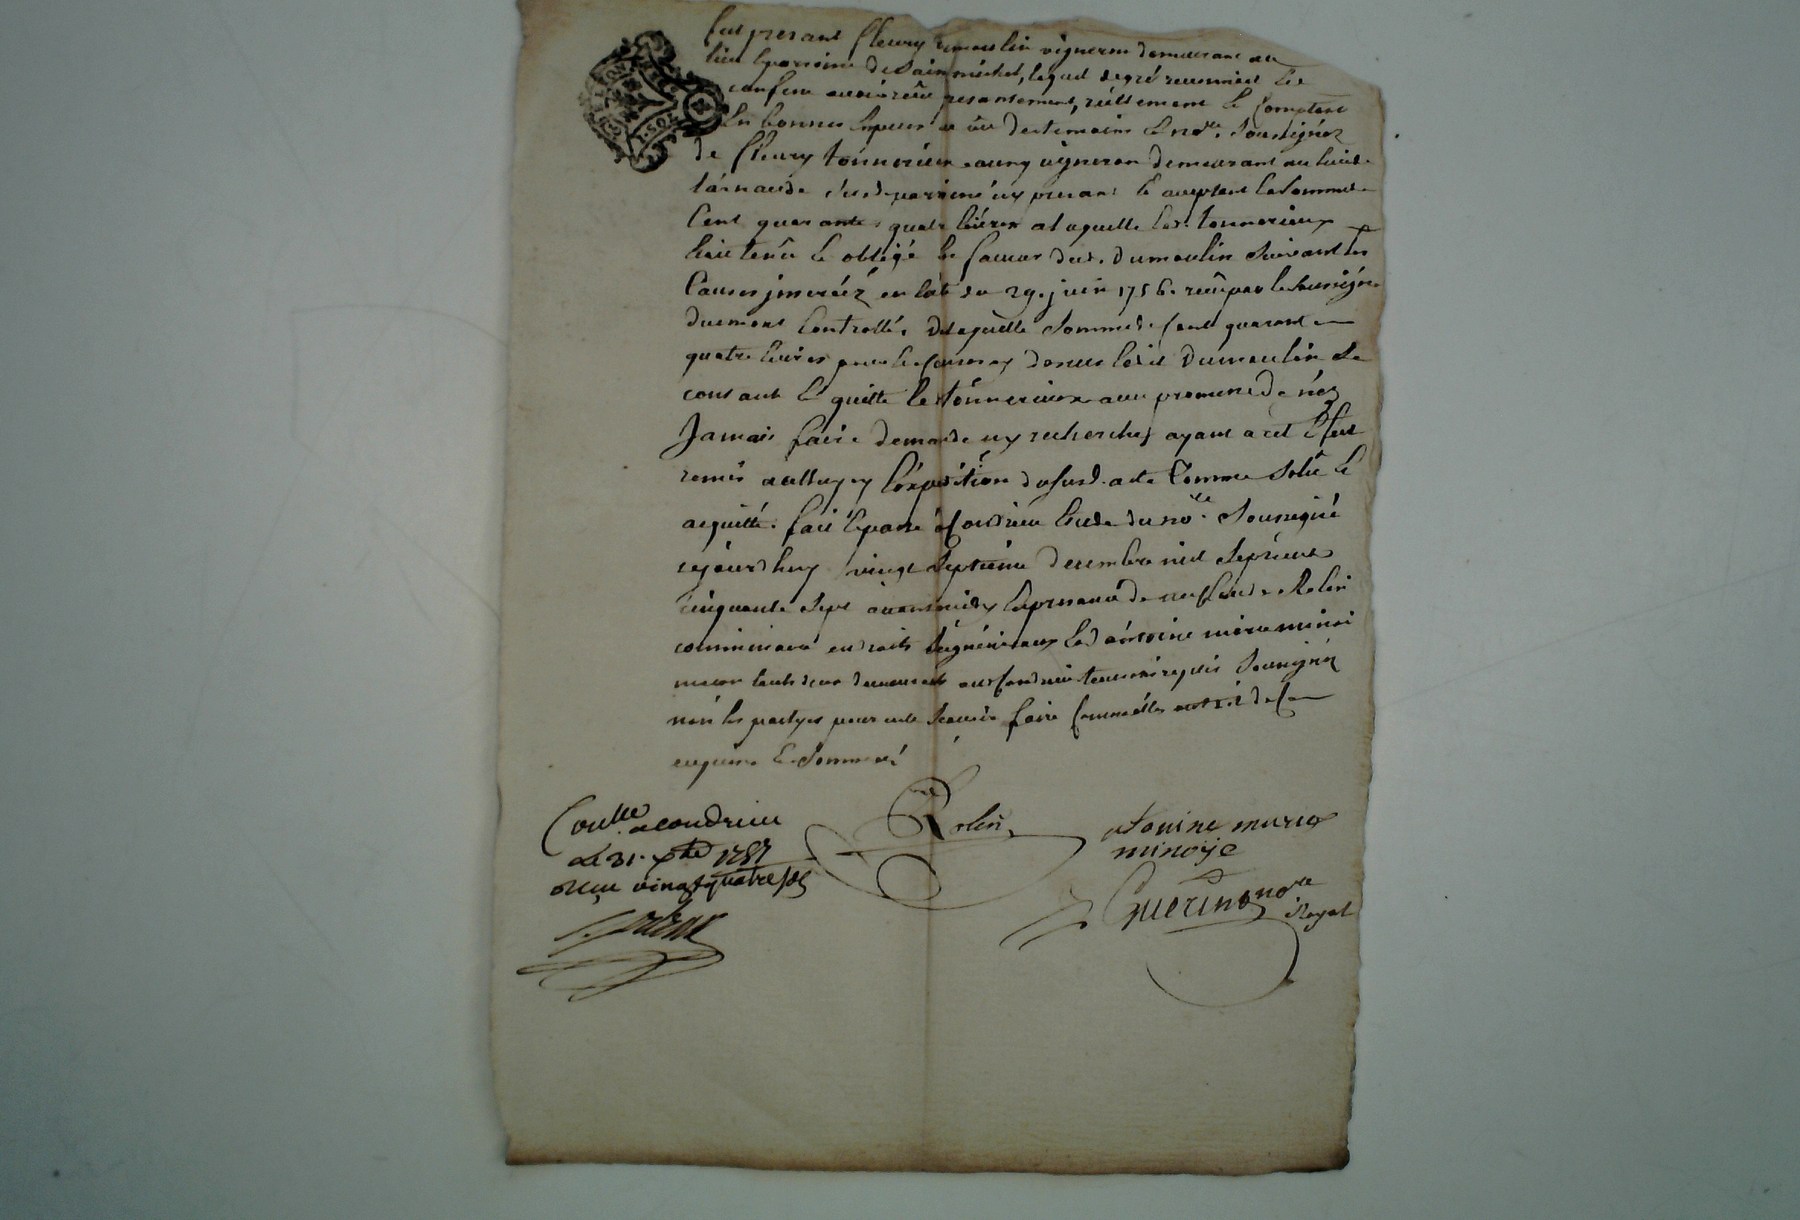 fut presant fleury dumoulin vigneron demeurant au
lieu & parroisse de Sain michel, lequel de gré reconnoist &
confesse avoir reçû presentement, réellement & comptant
en bonnes especes au vû des temoins & no.re Soussignez
de fleury tonnerieux jeuny vigneron demeurant au lieu de
larnaude susd. parroisse icy presant & aceptant la Somme de
Cent quarante quatre livres a laquelle led. tonnerieux
étoit tenû & obligé en faveur dud. dumoulin Suivant les
Causes inserées en l'acte du 29. juin 1756. reçû par le Soussigné
duement Controllé, de laquelle Somme de Cent quarante
quatre livres pour les causes cy dessus led. dumoulin Se
contant & quitte led. tonnerieux avec promesse de n'en
Jamais faire demande ny recherche, ayant a cet Effect
remis audluy cy l'expedition du susd. acte Comme Solû &
acquitté. fait & passé a Condrieu Etude du no.re Soussigné
cejourd'huy vingt Septieme decembre mil Sept cent
cinquante Sept avant midy En presence de Rolin
commissaire en droits Seigneuriaux & d'antoine marie minoie
demeurants aud. Condrieu temoins requis Soussignez
non les partyes pour ne le Scavoir faire
enquises & Sommées
Rolin
Con.lle a condrieu
le 31. x.bre 1757
Reçu vingt quatre sols
atonine marie
minoije
Guerin no.re
Royal